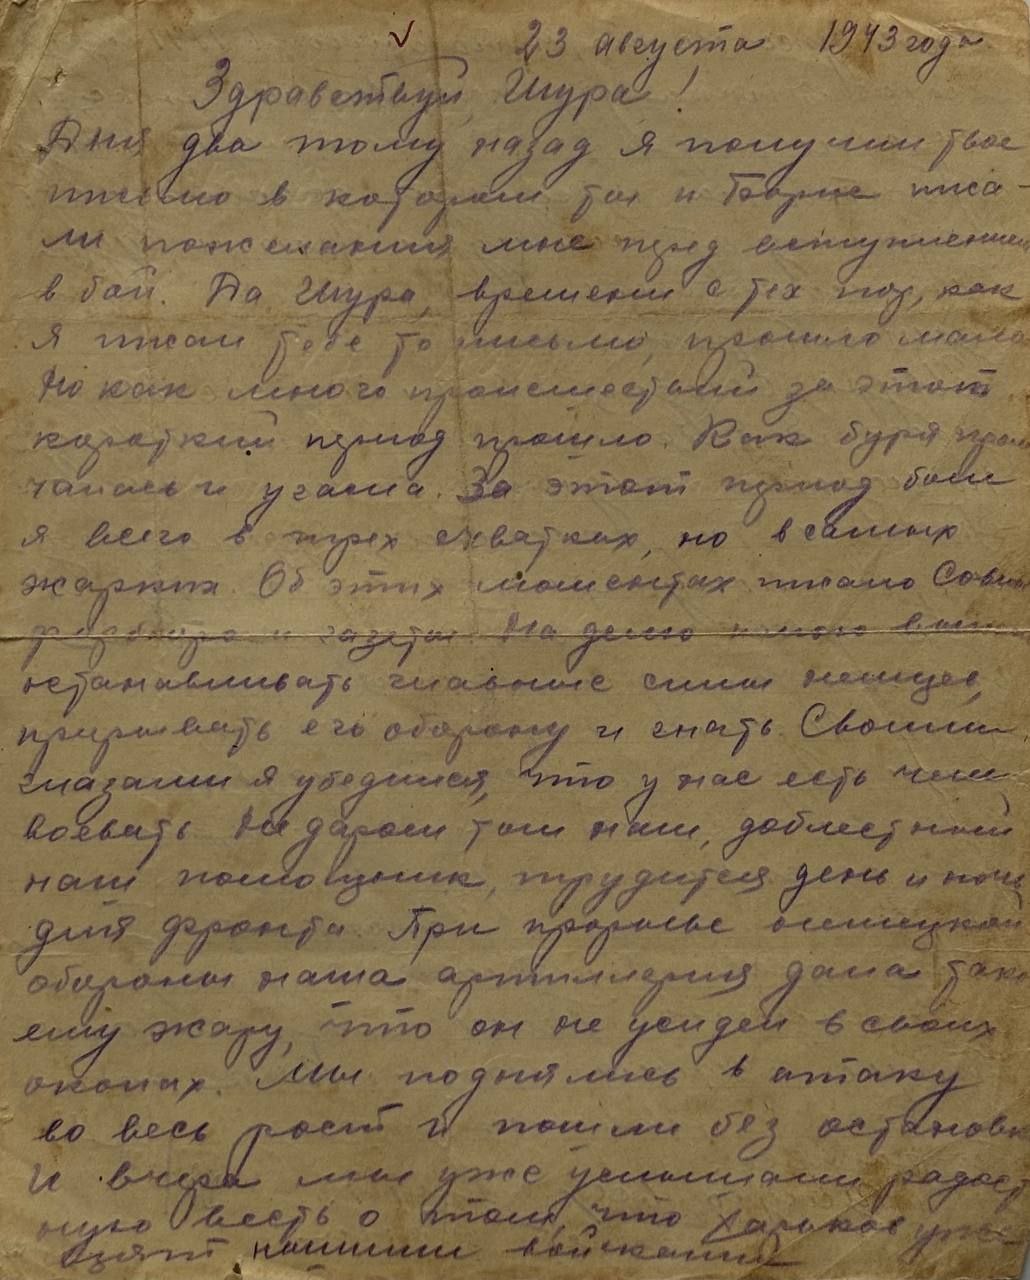 23 августа 1943 года
Здравствуй, Шура!
Дня два тому назад я получил твое
письмо в котором ты и Борис писа-
ли пожелания мне пред вступлением
в бой. Да Шура, времени с тех пор, как
я писал тебе то письмо, прошло мало
Но как много происшествий за этот
короткий период прошло. Как буря пром
чалась и угасла. За этот период был
я всего в трех схватках, но в самых
жарких. Об этих моментах писало Совин
формбюро и газеты. На долю
останавливать главные силы немцев,
прорывать его оборону и гнать. Своими
глазами я убедился, что у нас есть чем
воевать. Недаром тыл наш, доблестный
наш помощник, трудится день и ночь
для фронта. При прорыве немецкой
обороны наша артиллерия дала так
ему жару, что он не усидел в своих
окопах. Мы поднялись в атаку
во весь рост и пошли без остановк
И вчера мы уже услышали радост
ную весть о том, что Харьков уже
взят нашими войсками